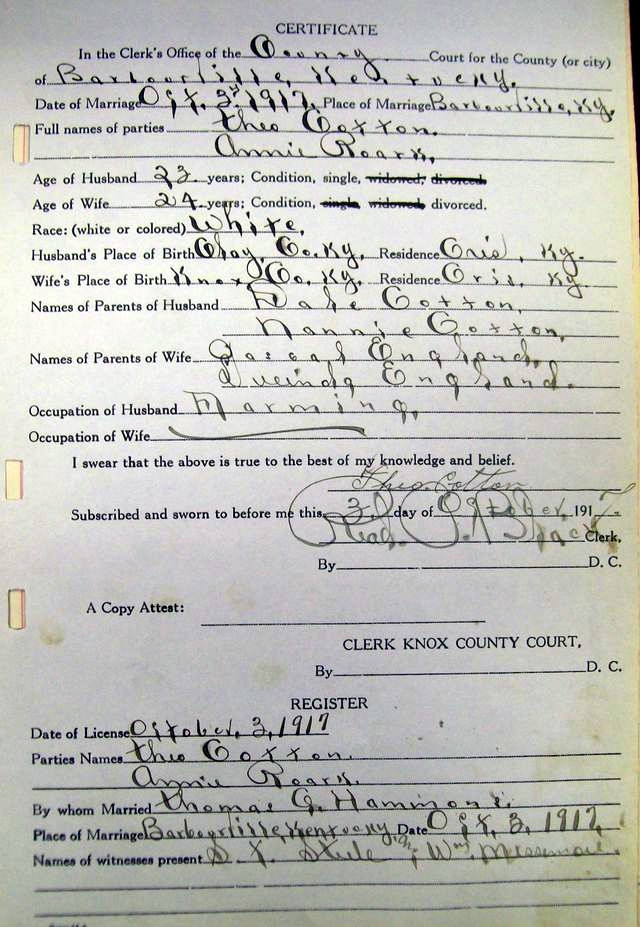 CERTIFICATE
In the Clerk's Office of the County Court for the County (or city)
of Barbourville, Kentucky.
Date of Marriage Oct. 3rd 1917. Place of Marriage Barbourville, Ky.
Full names of parties Theo Cotton.
Annie Roark.
Age of Husband 23 years; Condition, single, widowed, divorced
Age of Wife 24 years; Condition, single, widowed, divorced.
Race: (white or colored) White.
Husband's Place of Birth Clay Co. Ky. Residence Ky.
Wife's Place of Birth Knox Co. Ky. Residence Ky.
Names of Parents of Husband Cotton,
Nannie Cotton,
Names of Parents of Wife England,
England.
Occupation of Husband Farming,
Occupation of Wife
I swear that the above is true to the best of my knowledge and belief.
Theo. Cotton
Subscribed and sworn to before me this 3 day of October 1917
Read P. Black Clerk,
By D. C.
A Copy Attest:
CLERK KNOX COUNTY COURT,
By D. C.
REGISTER
Date of License October, 3, 1917
Parties Names Theo Cotton.
Annie Roark.
By whom Married Thomas G. Hammons.
Place of Marriage Barbourville, Kentucky Date Oct, 3, 1917,
Names of witnesses present Steele, Wm.